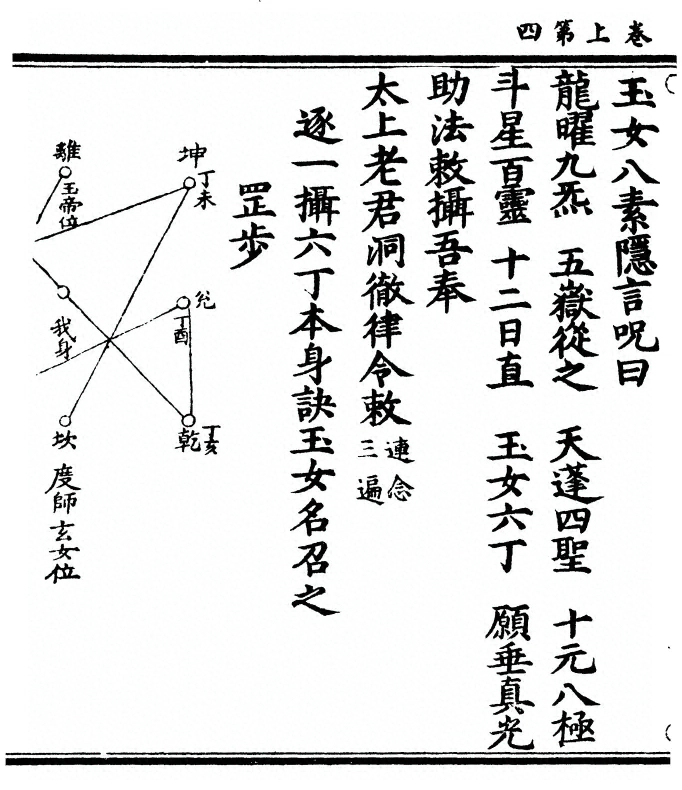 卷上第四
玉女八素隱言呪曰
龍曜九炁 五嶽從之 天蓬四聖 十元八極
斗星百靈 十二日直 玉女六丁 願垂真光
助法敕攝吾奉
太上老君洞徹律令敕連念三遍
逐一攝六丁本身訣玉女名召之
罡步
坤
丁未
兊
丁酉
乾
丁亥
離
玉帝位
我身
坎
度師玄女位